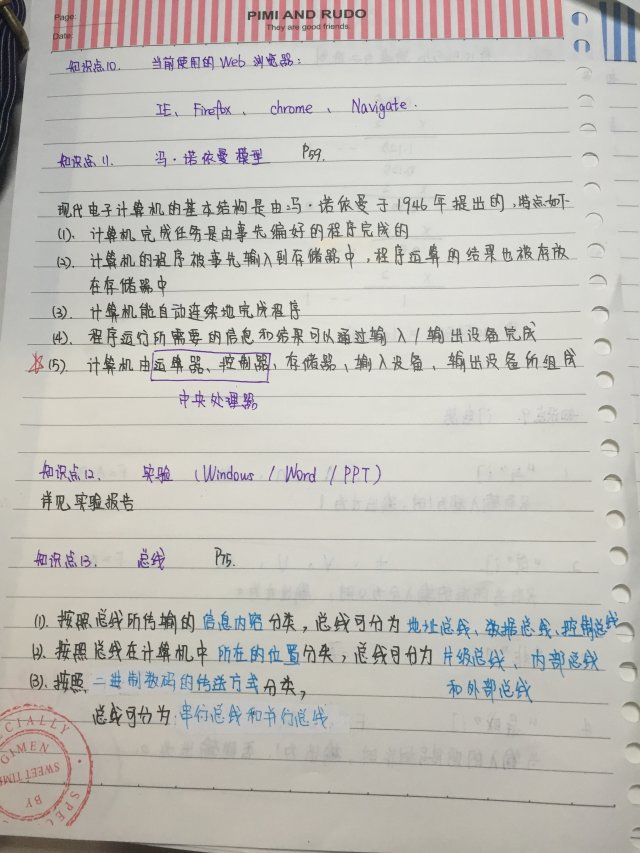 Page:
PIMI AND RUDO
They are good friends.
Date:
知识点10. 当前使用的Web 浏览器：
IE、Firefox、chrome、Navigate.
知识点11. 冯·诺依曼模型 P59.
现代电子计算机的基本结构是由冯·诺依曼于1946年提出的,特点如下
(1). 计算机完成任务是由事先编好的程序完成的
(2). 计算机的程序被事先输入到存储器中,程序运算的结果也被存放
在存储器中
(3). 计算机能自动连续地完成程序
(4). 程序运行所需要的信息和结果可以通过输入/输出设备完成
☆(5). 计算机由运算器、控制器、存储器、输入设备、输出设备所组成
中央处理器
知识点12. 实验 (Windows / Word / PPT)
详见实验报告
知识点13. 总线 P75.
(1). 按照总线所传输的信息内容分类，总线可分为地址总线、数据总线、控制总线
(2). 按照总线在计算机中所在的位置分类，总线可分为片级总线、内部总线
和外部总线
(3). 按照二进制数码的传送方式分类，
总线可分为:串行总线和并行总线
SPECIALLY
SWEET TIME
BY